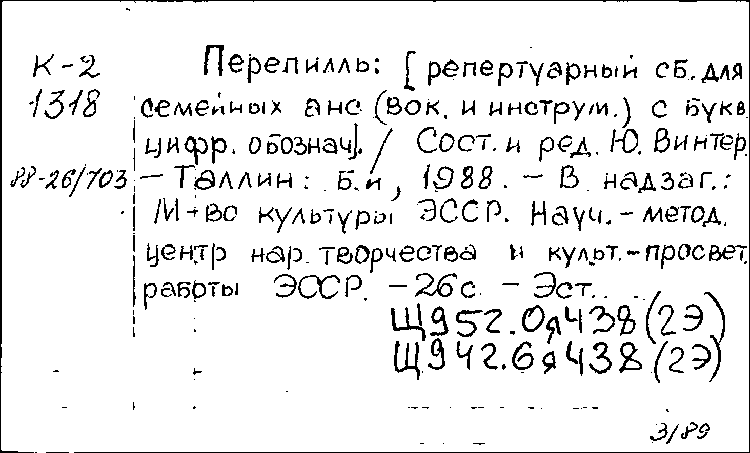 К-2 Перепилль: [репертуарный сб. для
1318 семейных анс (вок. и инструм.) с букв
цифр. обознач]. / Сост. и ред. Ю. Винтер
88-26/703 — Таллин: Б.и, 1988. — В надзаг.:
М-во культуры ЭССР. Науч.-метод.
центр нар. творчества и культ.-просвет.
работы ЭССР. — 26с. — Эст.
Щ952.0я438(2Э)
Щ942.6я438(2Э)
3/89